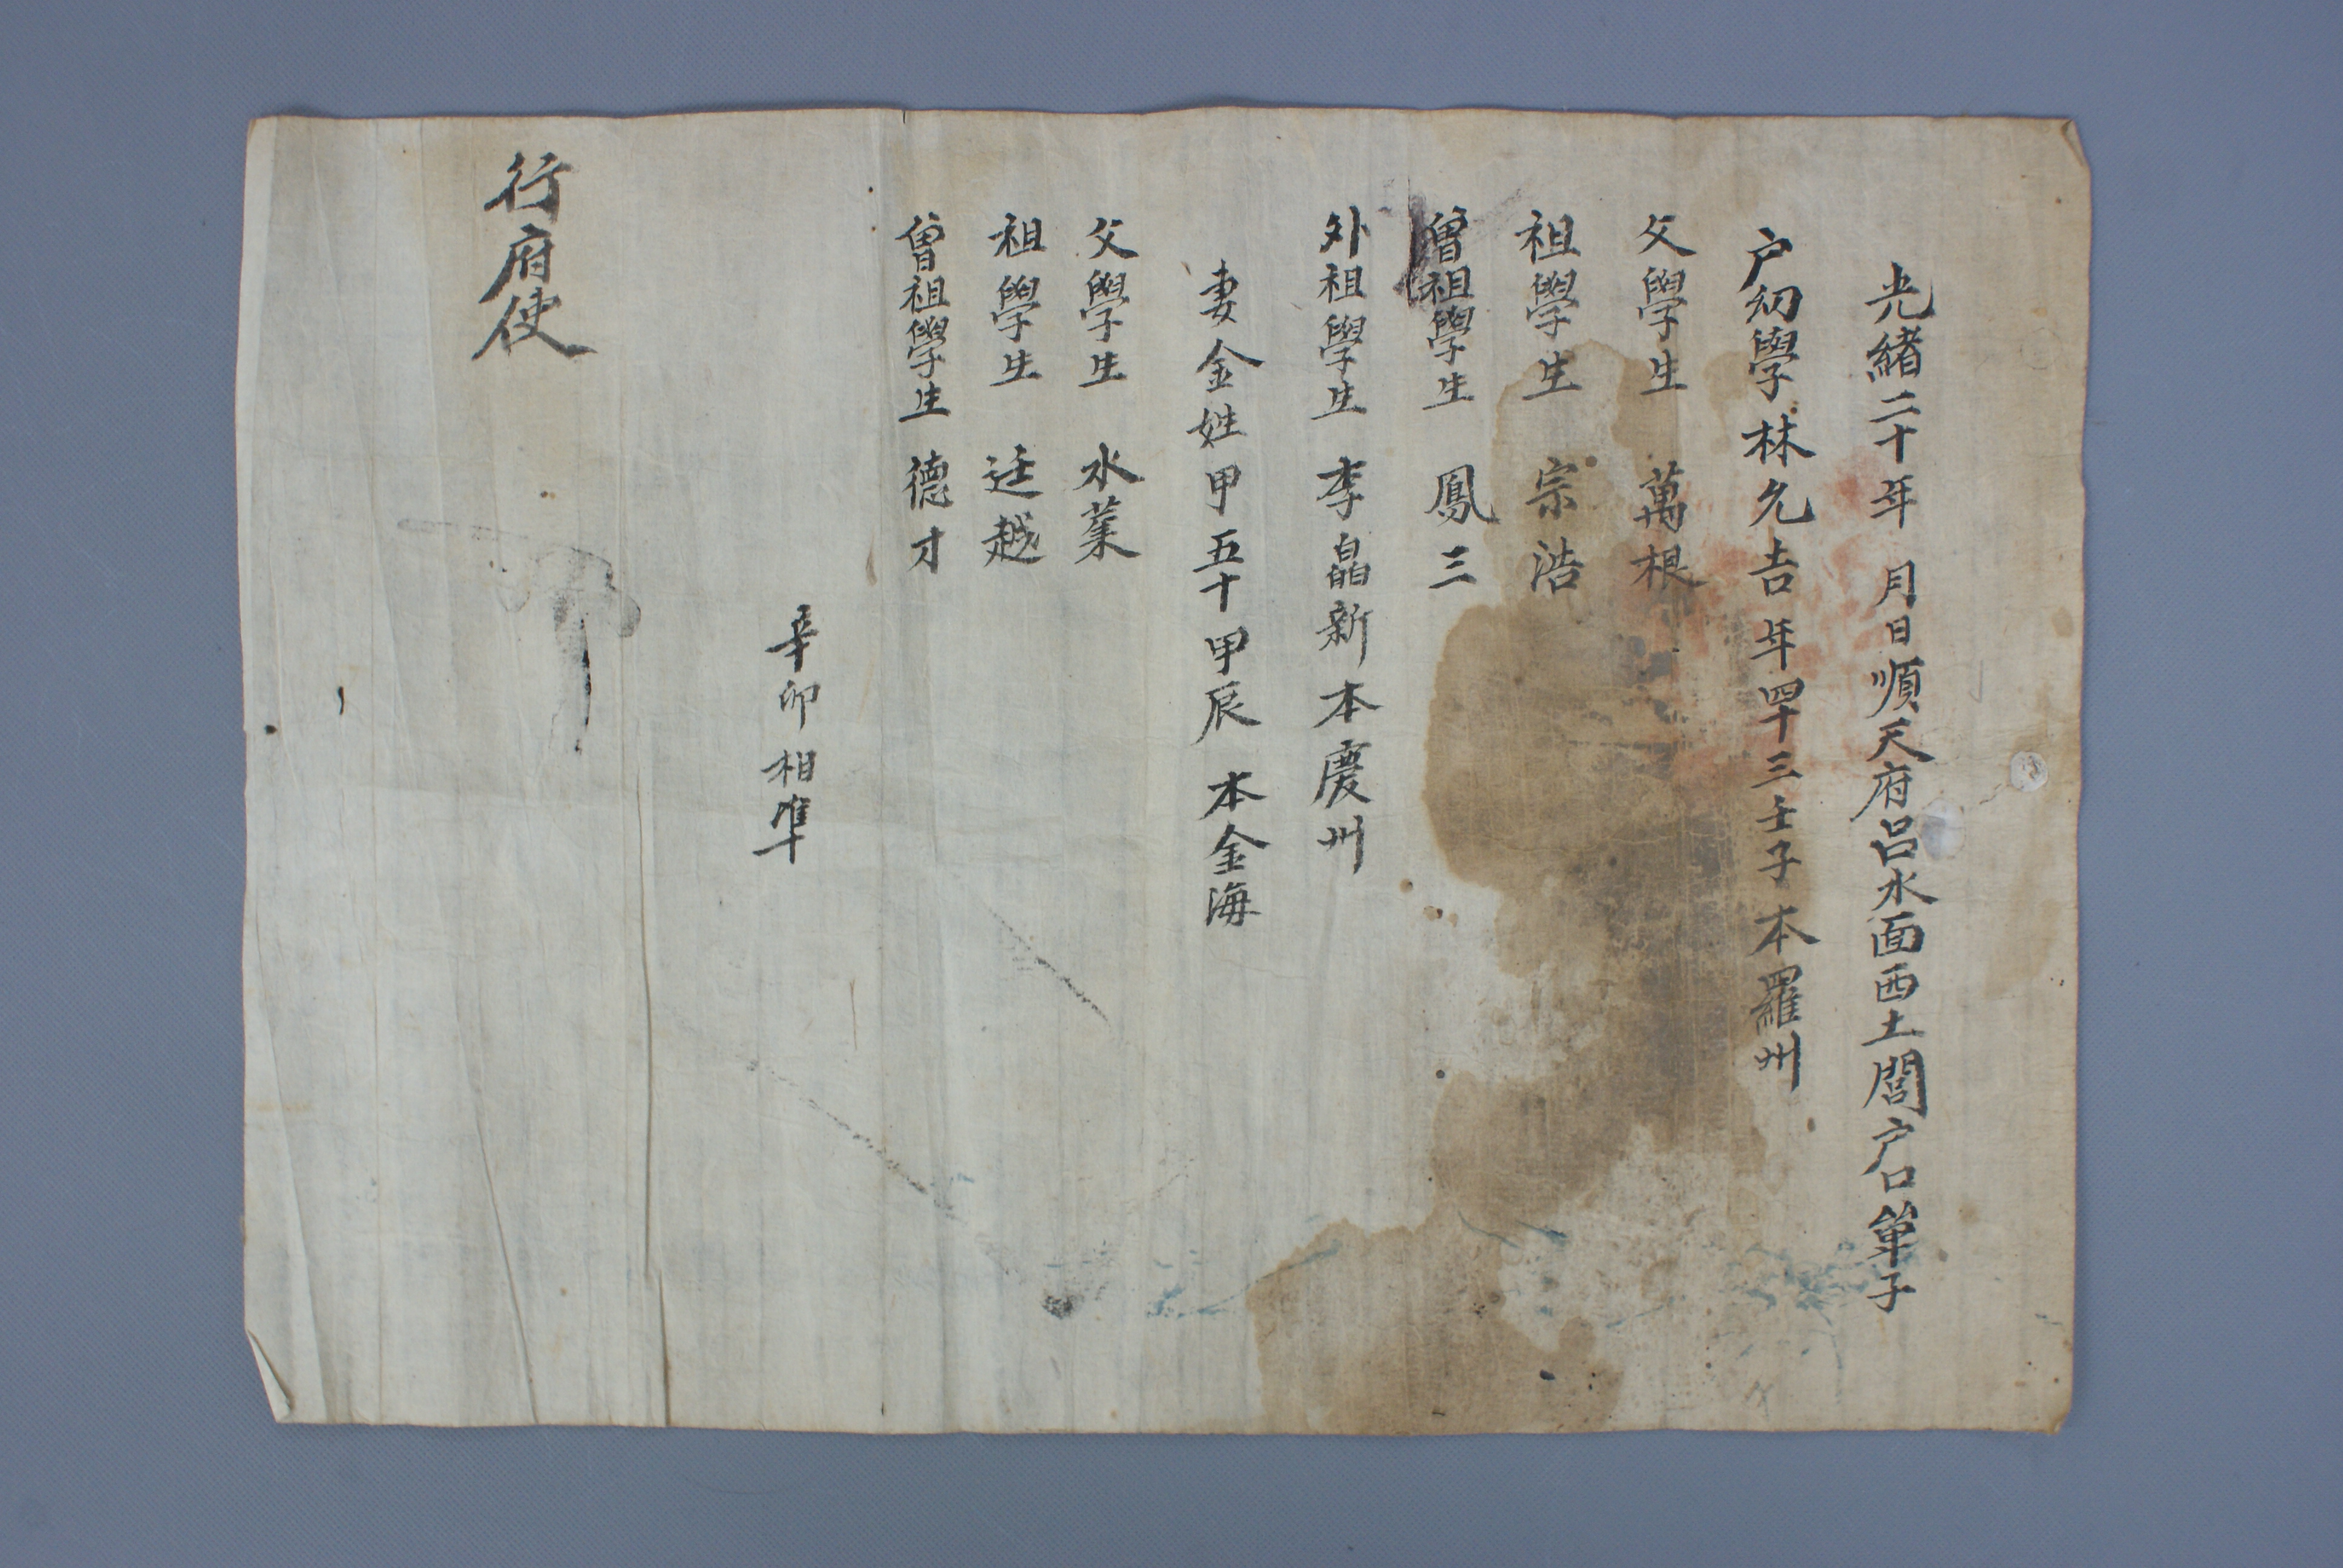 光緒二十年 月日順天府呂水面西土閭户口单子
户幼學林允吉年四十三壬子本羅州
父學生 萬根
祖學生 宗浩
曾祖學生 鳳三
外祖學生 李晶新本慶州
妻金姓甲五十甲辰 本金海
父學生 水業
祖學生 廷越
曾祖學生 德才
辛卯相準
行府使